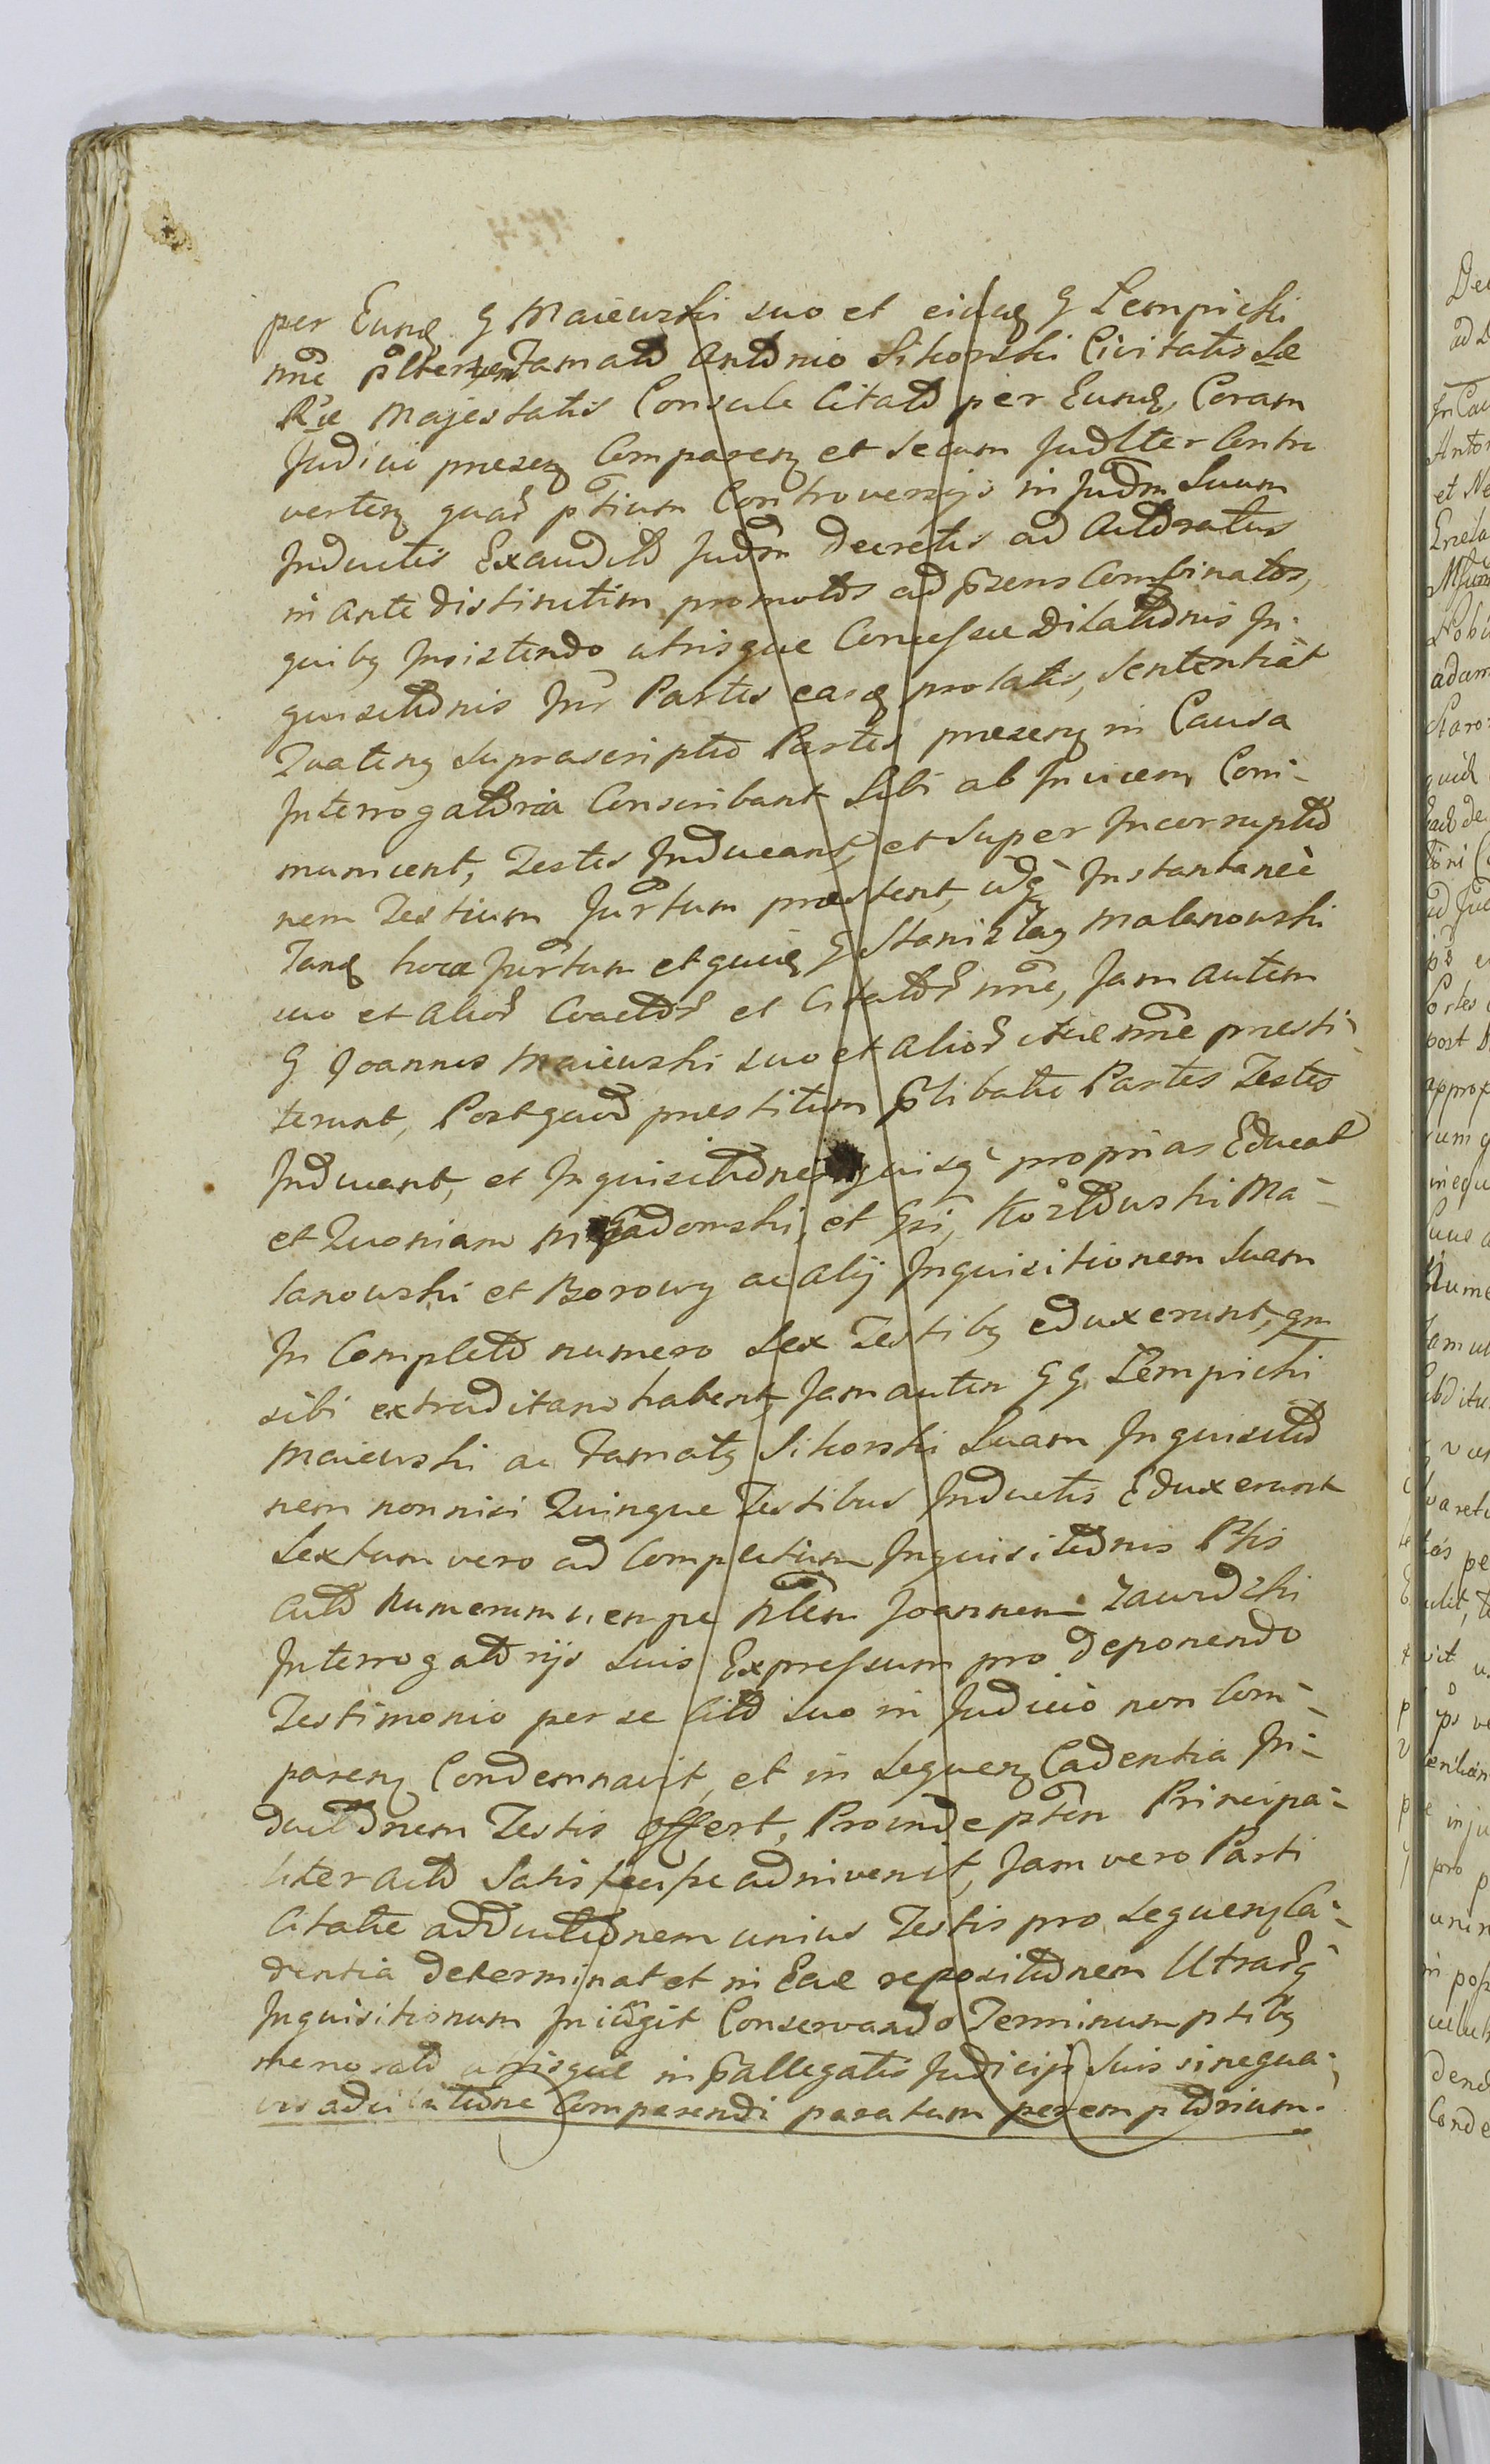 per Eundē G Maiewski suo et eidē G Lempicki
nñe pltery Famato Antonio Sikorski Civitatis Sæ
Rŭæ Majestatis Consule Citato per Eundē, Coram
Judicio præseng Compareng et secum Judlter Contro
verteng quar ptium Controversijs in Judm Suum
Inductis Exaudito Judm Decretis ad Actoratus
in ante Distinctim promotos ad pzens Combinatos,
quibg Insistendo utrisque Concessæ Dilationis In-
quisitionis Inr Partes easdē prolatis, Sententiat
Quateng Suprascripto Partes præseng in Causa
Interrogatoria Conscribant Sibi ab Invicem Com-
municent, Testes Inducant, et Super Incorruptio
nem Testium Jurtum præstent, idqz Instantaneè
Tandē hocce Jurtum et quidē G Stanislag Malanowski
suo et Alior Coactor et Citator nñe, Jam autem
G Joannes Maiewski suo et Alior itidē nñe præsti-
terunt, Post quod præstitum plibatæ Partes Testes
Inducent, et Inquisitiones quisq̀ proprias Educat
et Quoniam M Gadomski, et Gsi, Kozłowski Ma-
lanowski et Borowy ac Alij Inquisitionem Suam
In Completo numero Sex Testibg eduxerunt, qm
sibi extraditam habent, Jam autem GG Lempicki
Maiewski ac Famatg Sikorski Suam Inquisitio
nem nonnisi Quinque Testibus Inductis Eduxerunt
Sextum vero ad Completum Inquisitionis Ptis
Acto Numerum nempe Nlem Joannem Zawodzki
Interrogatorijs suis Expressum pro Deponendo
Testimonio per se Cito suo in Judicio non Com-
pareng Condemnavit, et in Sequeng Cadentia In-
ductionem Testis offert, Proinde ptem Principa-
liter Acto Satisfecisse adinvenit, Jam vero Parti
Citatæ adductionem unius Testis pro Sequeng Ca-
dentia determinat et in Eadē repositionem Utrarq̀
Inquisitionum Iniungit Conservando Terminum ptibg
memorato utrisque in pallegatis Judicijs suis sinequa-
vis adcitatione Comparendi paratum peremptorium.